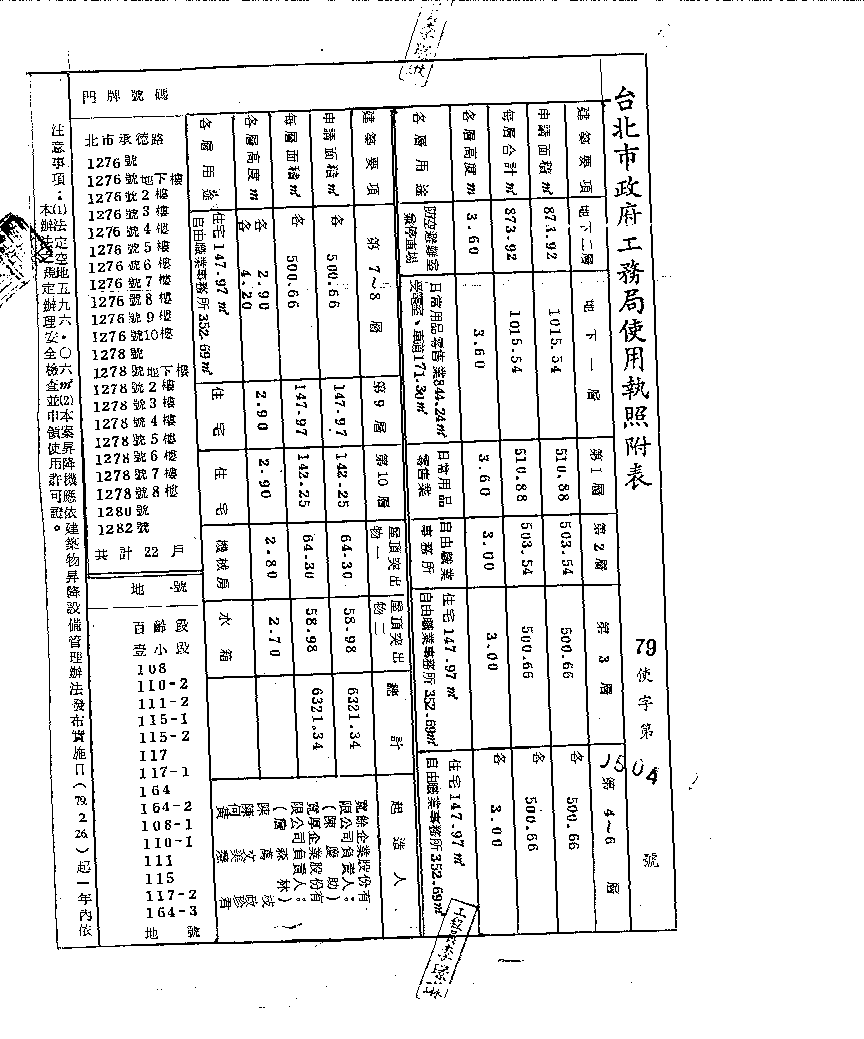 台北市政府工務局使用執照附表
79使字第 號
建築要項 地下二層 地下一層 第1層 第2層 第3層 第4~6層
申請面積㎡ 873.92 1015.54 510.88 503.54 500.66 各 500.66
每層合計㎡ 873.92 1015.54 510.88 503.54 500.66 各 500.66
各層高度m 3.60 3.60 3.60 3.00 3.00 各 3.00
各層用途 防空避難室兼停車場 日常用品零售業844.24㎡ 日常用品零售業 自由職業事務所 住宅147.97㎡ 自由職業事務所352.69㎡ 住宅147.97㎡ 自由職業事務所352.69㎡
車道171.30㎡
建築要項 第7~8層 第9層 第10層 屋頂突出物一 屋頂突出物二 總計 起造人
申請面積㎡ 各 500.66 147.97 142.25 64.30 58.98 6321.34
每層面積㎡ 各 500.66 147.97 142.25 64.30 58.98 6321.34
各層高度m 各 2.90 各 4.20 2.90 2.90 2.80 2.70
各層用途 住宅147.97㎡ 自由職業事務所352.69㎡ 住宅 住宅 機械房 水箱
企業股份有
限公司負責人:
企業股份有
限公司負責人:
門牌號碼
北市承德路
1276號
1276號地下樓
1276號2樓
1276號3樓
1276號4樓
1276號5樓
1276號6樓
1276號7樓
1276號8樓
1276號9樓
1276號10樓
1278號
1278號地下樓
1278號2樓
1278號3樓
1278號4樓
1278號5樓
1278號6樓
1278號7樓
1278號8樓
1280號
1282號
共計22戶
地號
百齡段
壹小段
108
110-2
111-2
115-1
115-2
117
117-1
164
164-2
108-1
110-1
111
115
117-2
164-3
地號
注意事項:(1)法定空地五九六.〇六㎡(2)本案昇降機應依建築物昇降設備管理辦法發布實施日(79.2.26.)起一年內依
本辦法規定辦理安全檢查並申領使用許可證。